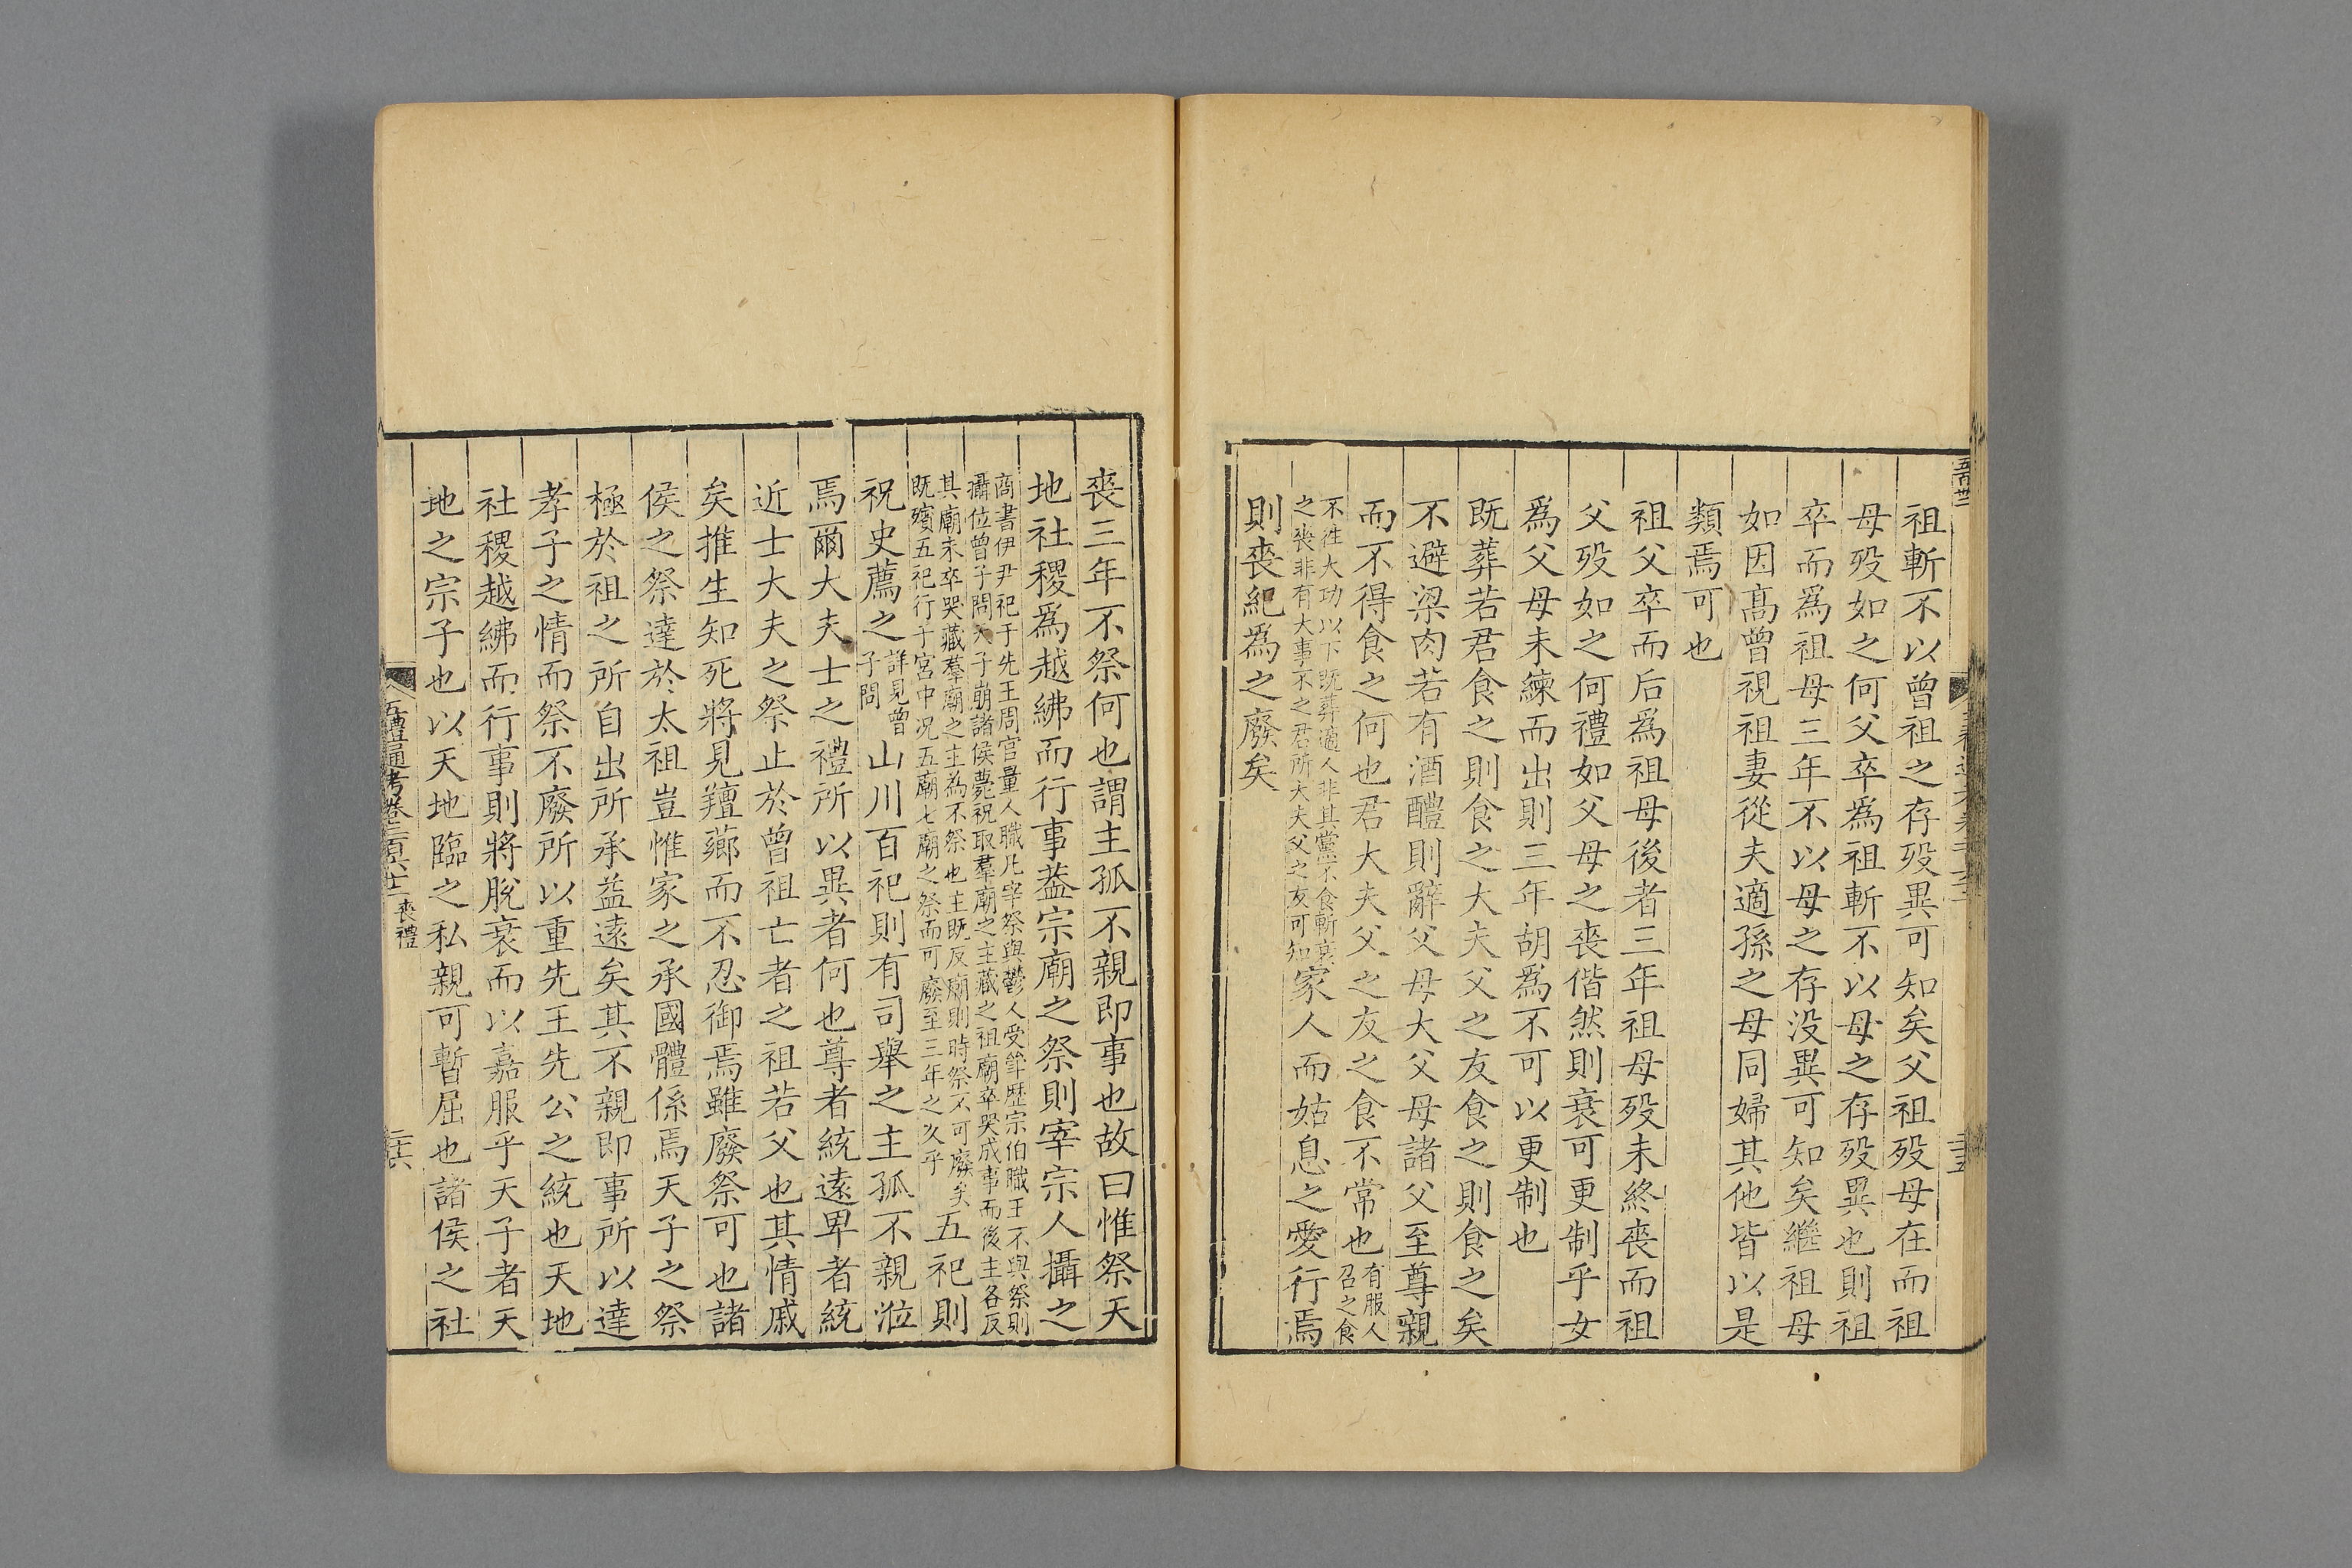 祖斬不以曾祖之存歿異可知矣父祖歿母在而祖
母歿如之何父卒爲祖斬不以母之存歿異也則祖
卒而爲祖母三年不以母之存没異可知矣繼祖母
如因高曾視祖妻從夫適孫之母同婦其他皆以是
類焉可也
祖父卒而后爲祖母後者三年祖母歿未終喪而祖
父歿如之何禮如父母之喪偕然則衰可更制乎女
爲父母未練而出則三年胡爲不可以更制也
既葬若君食之則食之大夫父之友食之則食之矣
不避梁肉若有酒醴則辭父母大父母諸父至尊親
而不得食之何也君大夫父之友之食不常也有服人
召之食
不往大功以下既葬適人非其黨不食斬衰
之喪非有大事不之君所大夫父之友可知家人而姑息之愛行焉
則喪紀爲之廢矣
喪三年不祭何也謂主孤不親即事也故曰惟祭天
地社稷爲越紼而行事葢宗廟之祭則宰宗人攝之
商書伊尹祀于先王周官量人職凡宰祭與鬱人受斝歷宗伯職王不與祭則
攝位曾子問天子崩諸侯薨祝取羣廟之主藏之祖廟卒哭成事而後主各反
其廟未卒哭藏羣廟之主為不祭也主既反廟則時祭不可廢矣
既殯五祀行于宮中况五廟七廟之祭而可廢至三年之久乎五祀則
祝史薦之詳見曾
子問山川百祀則有司舉之主孤不親涖
焉爾大夫士之禮所以異者何也尊者統遠卑者統
近士大夫之祭止於曾祖亡者之祖若父也其情戚
矣推生知死將見羶薌而不忍御焉雖廢祭可也諸
侯之祭達於太祖豈惟家之承國體係焉天子之祭
極於祖之所自出所承益遠矣其不親即事所以達
孝子之情而祭不廢所以重先王先公之統也天地
社稷越紼而行事則將脫衰而以嘉服乎天子者天
地之宗子也以天地臨之私親可暫屈也諸侯之社
五禮通考卷二百六十二喪禮
二十六